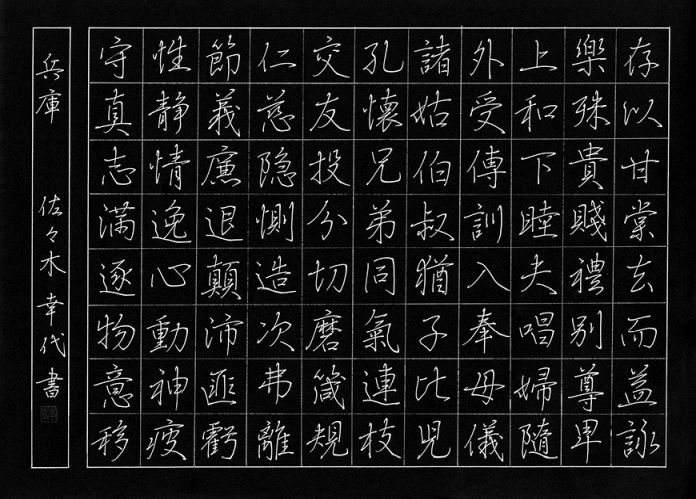 存以甘棠去而益詠
樂殊貴賤禮別尊卑
上和下睦夫唱婦隨
外受傅訓入奉母儀
諸姑伯叔猶子比児
孔懐兄弟同氣連枝
交友投分切磨箴規
仁慈隠惻造次弗離
節義廉退顛沛匪虧
性静情逸心動神疲
守真志満逐物意移
兵庫 佐々木幸代書